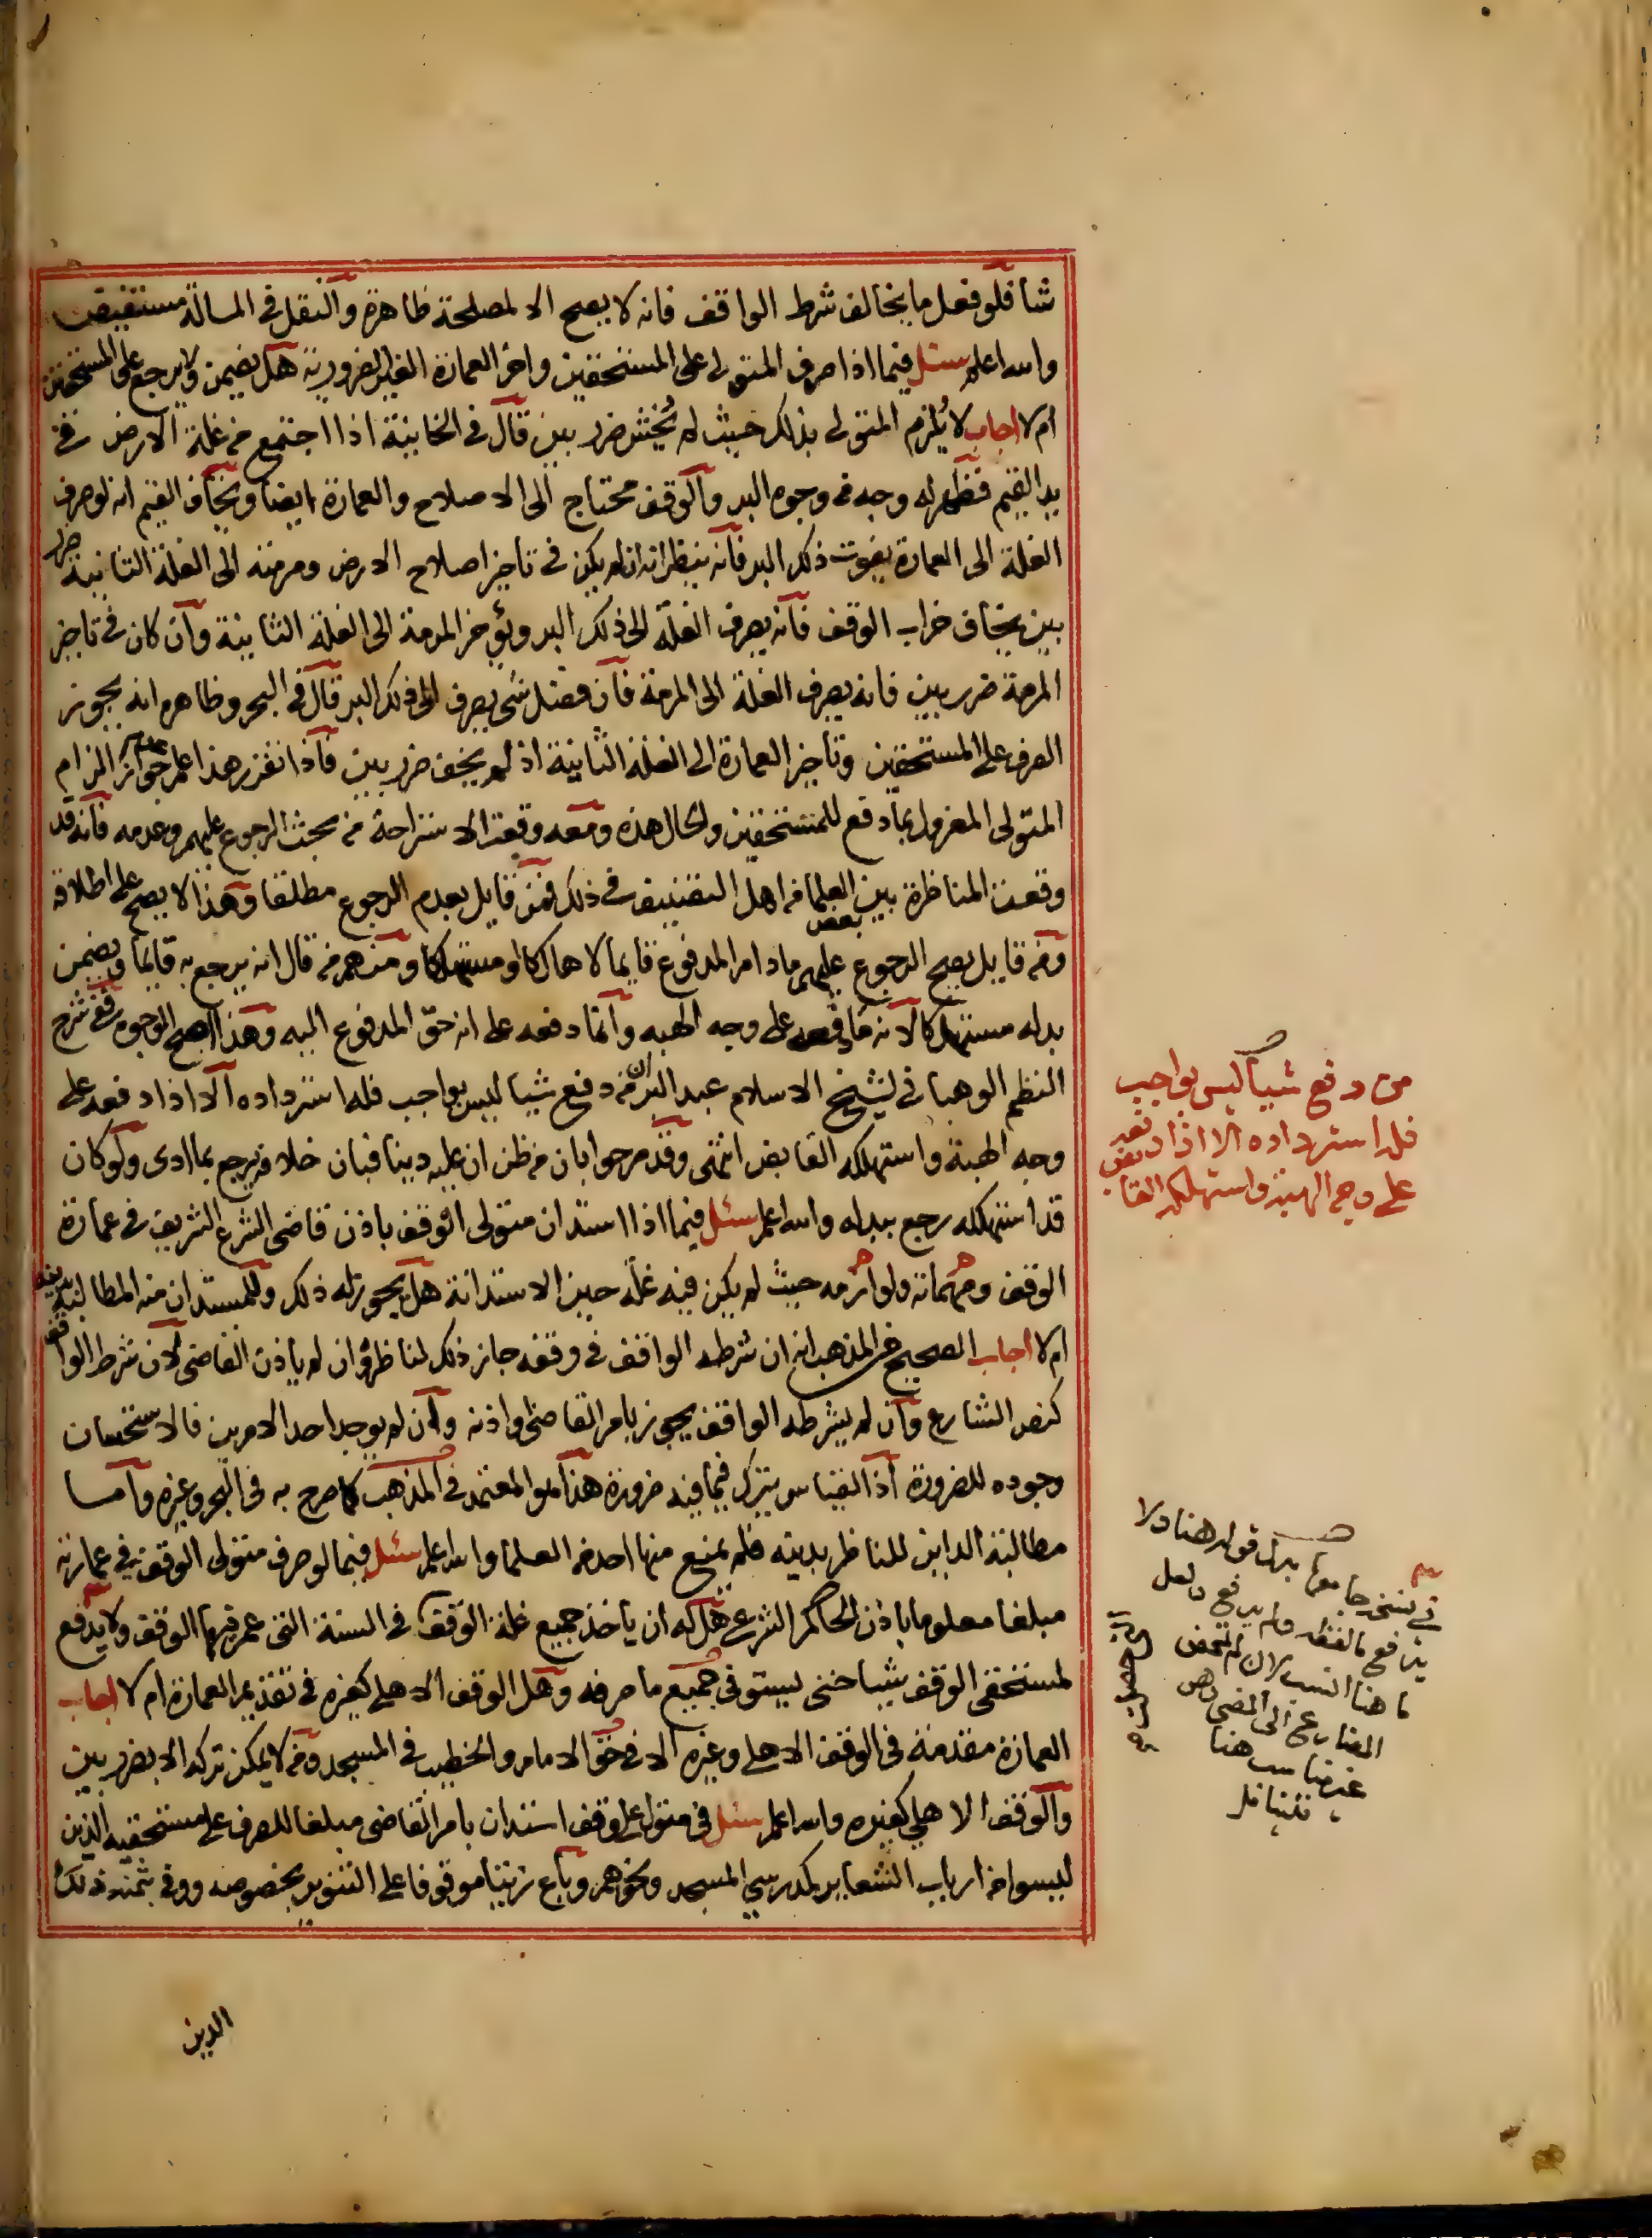 شا فلو فعل ما يخالف شرط الواقف فانه لا يصح الا لمصلحة ظاهرة والنقل في المسالة مستفيض
والله اعلم سئل فيما اذا صرف المتولى على المستحقين واخر العمارة الغير الضرورية هل يضمن ولا يرجع على المستحقين
ام لا اجاب لا يلزم المتولى بذلك حيث لم يخش ضرر بين قال في الخانية اذا اجتمع من غلة الارض في
يد القيم فظهر له وجه من وجوه البر والوقف محتاج الى الاصلاح والعمارة ايضا ويخاف القيم انه لو صرف
الغلة الى العمارة يفوت ذلك البر فانه ينظر انه ان لم يكن في تاخير اصلاح الارض ومرمته الى الغلة الثانية ضرر
بين يخاف خراب الوقف فانه يصرف الغلة الى ذلك البر ويؤخر المرمة الى الغلة الثانية وان كان في تاخير
المرمة ضرر بين فانه يصرف الغلة الى المرمة فان فضل شئ يصرف الى ذلك البر قال في البحر وظاهره انه يجوز
الصرف على المستحقين وتاخير العمارة الى الغلة الثانية اذ لم يخف ضرر بين فاذا تقرر هذا علم عدم جواز الزام
المتولى المعزول بما دفع للمستحقين والحال هذه ومعه وقعت الاستراحة من مبحث الرجوع عليهم وعدمه فانه قد
وقعت المناظرة بين بعض العلما من اهل التصنيف في ذلك فمن قايل بعدم الرجوع مطلقا وهذا لا يصح على اطلاقه
ومن قايل يصح الرجوع عليهم مادام المدفوع قايما لا هالكا او مستهلكا ومنهم من قال انه يرجع به قايما ويضمن
بدله مستهلكا لانه ما دفعه على وجه الهبه وانما دفعه على انه حق المدفوع اليه وهذا اصح الوجوه ففي شرح
النظم الوهباني لشيخ الاسلام عبد البر ان من دفع شيا ليس بواجب فله استرداده الا اذا دفعه على
وجه الهبة واستهلكه القابض انتهى وقد صرحوا بان من ظن ان عليه دينا فبان خلافه يرجع بما ادى ولو كان
قد استهلكه رجع ببدله والله اعلم سئل فيما اذا استدان متولى الوقف باذن قاضى الشرع الشريف في عمارة
الوقف ومهماته ولوازمه حيث لم يكن فيه غلة حين الاستدانة هل يجوز له ذلك وللمستدان منه المطالبة بدينه
ام لا اجاب الصحيح من المذهب انه ان شرطه الواقف في وقفه جاز ذلك لناظره وان لم ياذن القاضى لان شرط الواقف
كنص الشارع وان لم يشرطه الواقف يجوز بامر القاضى او اذنه وان لم يوجد احد الامرين فالاستحسان
وجوده للضرورة اذ القياس يترك فيما فيه ضرورة هذا هو المعتمد في المذهب كما صرح به في البحر وغيره واما
مطالبة الداين للناظر بدينه فلم يمنع منها احد من العلما والله اعلم سئل فيما لو صرف متولى الوقف في عمارته
مبلغا معلوما باذن الحاكم الشرعي هل له ان ياخذ جميع غلة الوقف في السنة التي عمر فيها الوقف ولا يدفع
لمستحقى الوقف شيا حتى يستوفى جميع ما صرفه وهل الوقف الاهلى كغيره في تقديم العمارة ام لا اجاب
العمارة مقدمة في الوقف الاهلى وغيره الا في حق الامام والخطيب في المسجد ومن لا يمكن تركه الا بضرر بين
والوقف الاهلي كغيره والله اعلم سئل في متول على وقف استدان بامر القاضى مبلغا للصرف على مستحقيه الذين
ليسوا من ارباب الشعاير كمدرسي المسجد ونحوهم وباع زيتا موقوفا على التنوير بخصوصه ووفى بثمنه ذلك
الدين
من دفع شيأ ليس بواجب
فله استرداده الا اذا دفعه
على وجه الهبة واستهلكه القابض
في نسخة جامعها بدل قوله هنا ولا
يدفع بالفظه ولم يدفع ولعل
ما هنا انسب لان لم تمحض
المضارع الى المضى وهو
غير مناسب هنا
فليتامل